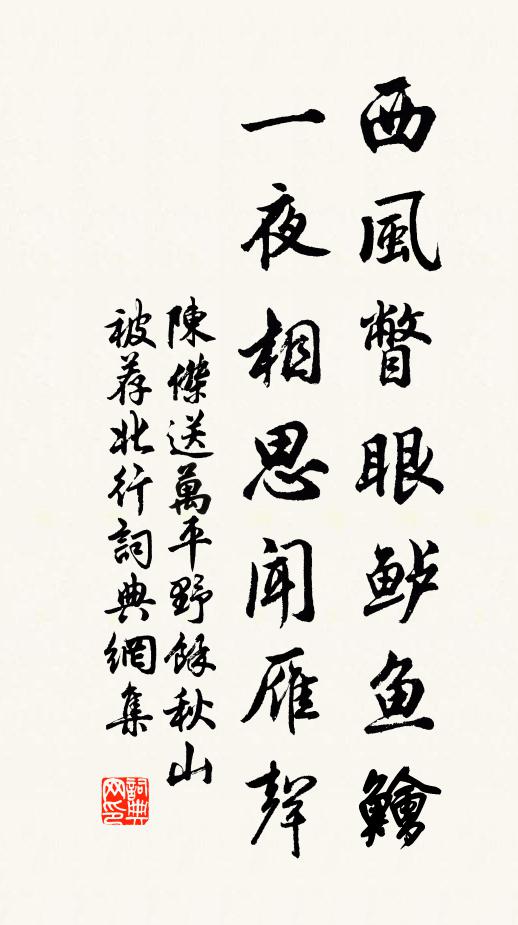 西風瞥眼鲈鱼鱠
一夜相思闻雁聲
陳傑送萬平野餘秋山
被荐北行詞典網集
詞典网印